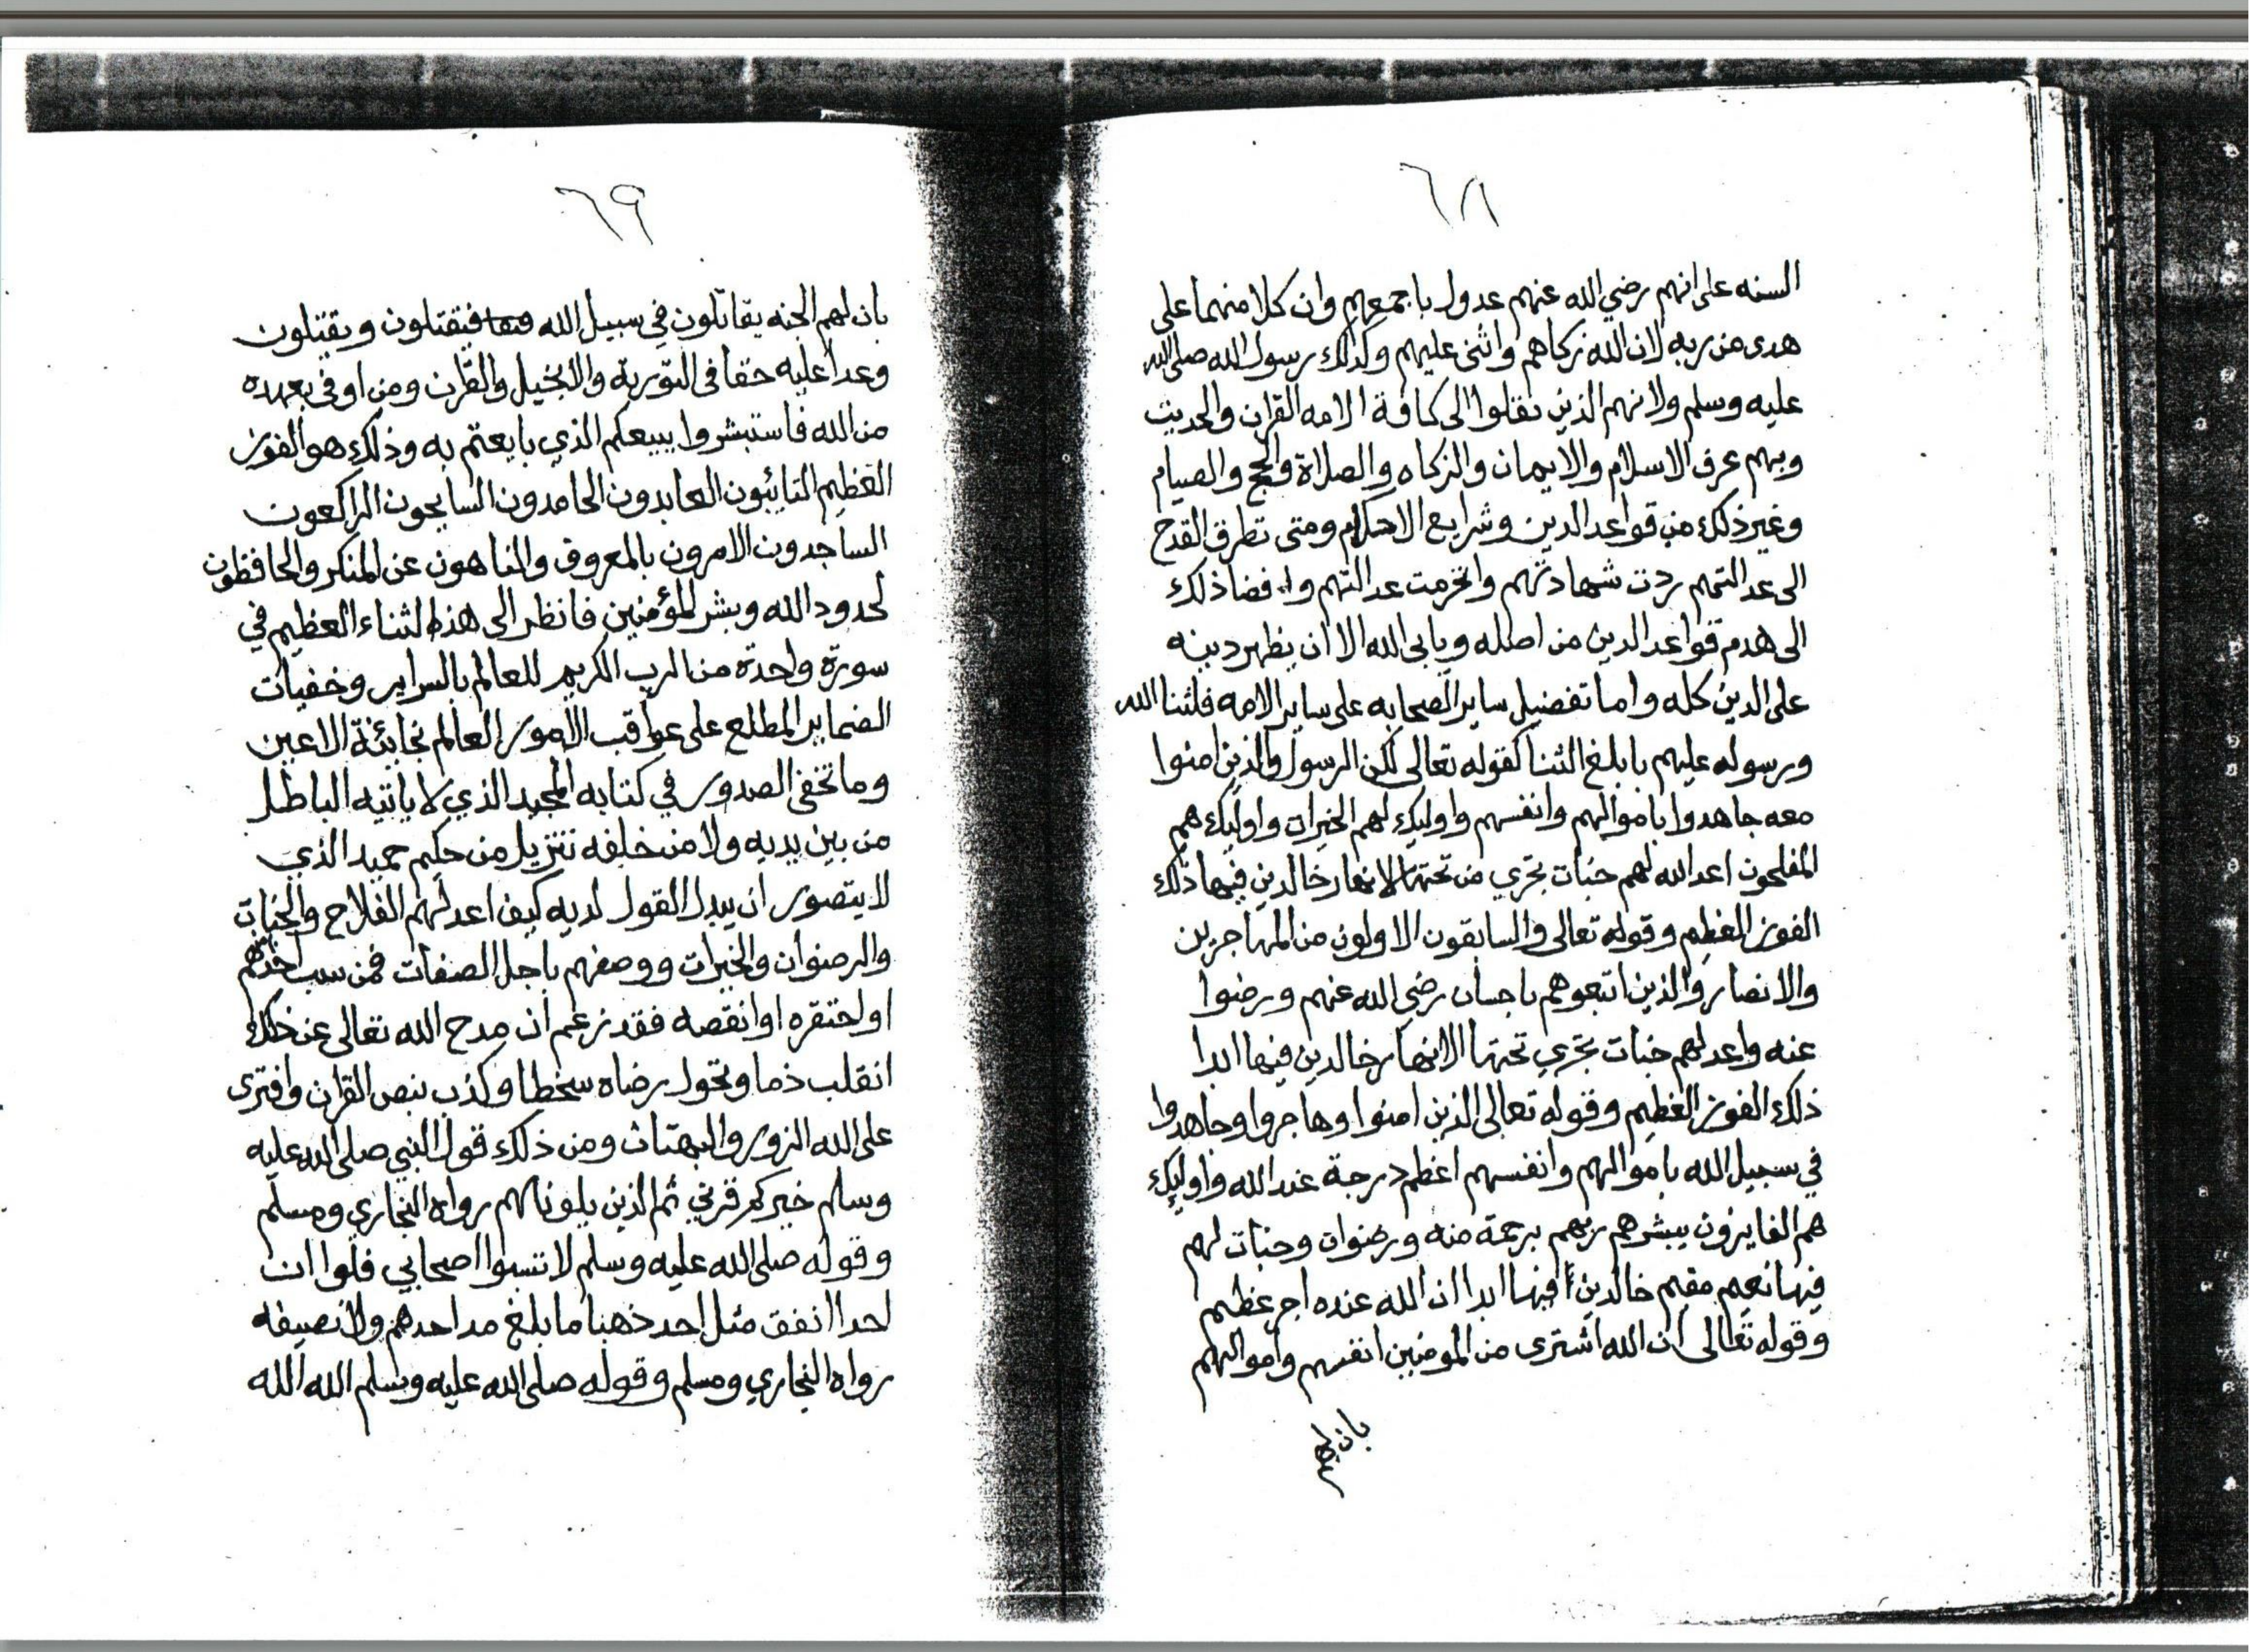 ٦٨
السنه على انهم رضي الله عنهم عدول باجمعهم وان كلا منهما على
هدى من ربه لان الله زكاهم واثنى عليهم وكذلك رسول الله صلى الله
عليه وسلم ولانهم الذين نقلوا الى كافة الامه القران والحديث
وبهم عرف الاسلام والايمان والزكاه والصلاة والحج والصيام
وغير ذلك من قواعد الدين وشرايع الاحكام ومتى تطرق القدح
الى عدالتهم ردت شهادتهم وانخرمت عدالتهم وافضا ذلك
الى هدم قواعد الدين من اصله ويابى الله الا ان يظهر دينه
على الدين كله واما تفضيل ساير الصحابه على ساير الامه فلثنا الله
ورسوله عليهم بابلغ الثنا كقوله تعالى لكن الرسول والذين امنوا
معه جاهدوا باموالهم وانفسهم واوليك لهم الخيرات واوليك هم
المفلحون اعد الله لهم جنات تجري من تحتها الانهار خالدين فيها ذلك
الفوز العظيم وقوله تعالى والسابقون الاولون من المهاجرين
والانصار والذين اتبعوهم باحسان رضي الله عنهم ورضوا
عنه واعد لهم جنات تجري تحتها الانهار خالدين فيها ابدا
ذلك الفوز العظيم وقوله تعالى الذين امنوا وهاجروا وجاهدوا
في سبيل الله باموالهم وانفسهم اعظم درجة عند الله واوليك
هم الفايزون يبشرهم ربهم برحمة منه ورضوان وجنات لهم
فيها نعيم مقيم خالدين فيها ابدا ان الله عنده اجر عظيم
وقوله تعالى ان الله اشترى من المومنين انفسهم واموالهم
بان لهم
٦٩
بان لهم الجنه يقاتلون في سبيل الله فيقتلون ويقتلون
وعدا عليه حقا في التورية والانجيل والقرآن ومن اوفى بعهده
من الله فاستبشروا ببيعكم الذي بايعتم به وذلك هو الفوز
العظيم التائبون العابدون الحامدون السايحون الراكعون
الساجدون الامرون بالمعروف والناهون عن المنكر والحافظون
لحدود الله وبشر المؤمنين فانظر الى هذا الثناء العظيم في
سورة واحدة من الرب الكريم للعالم بالسراير وخفيات
الضماير المطلع على عواقب الامور العالم بخائنة الاعين
وما تخفى الصدور في كتابه المجيد الذي لا ياتيه الباطل
من بين يديه ولا من خلفه تنزيل من حكيم حميد الذي
لا يتصور ان يبدل القول لديه كيف اعد لهم الفلاح والجنات
والرضوان والخيرات ووصفهم باجل الصفات فمن سب احدهم
او احتقره او انقصه فقد زعم ان مدح الله تعالى عن ذلك
انقلب ذما وتحول رضاه سخطا وكذب بنص القران وافترى
على الله الزور والبهتان ومن ذلك قول النبي صلى الله عليه
وسلم خيركم قرني ثم الذين يلونهم رواه البخاري ومسلم
وقوله صلى الله عليه وسلم لا تسبوا اصحابي فلوا ان
احدا انفق مثل احد ذهبا ما بلغ مد احدهم ولا نصيفه
رواه البخاري ومسلم وقوله صلى الله عليه وسلم الله الله